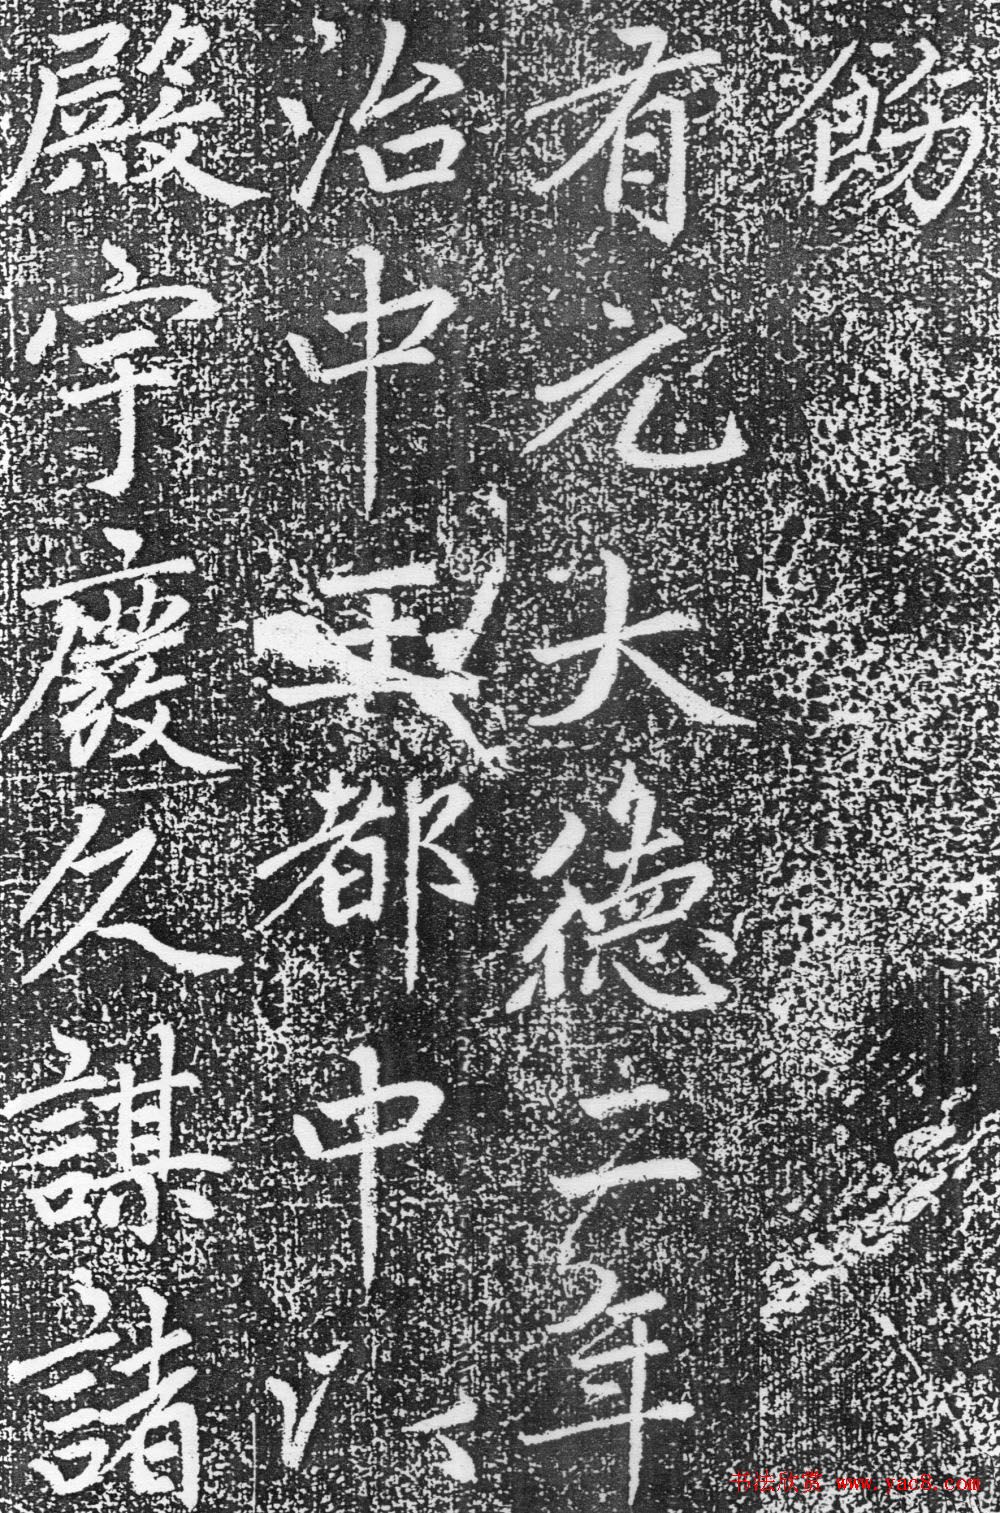 飭
有元大德二年
冶中王都中
殿宇廢久謀諸
书法欣赏 www.yac8.com